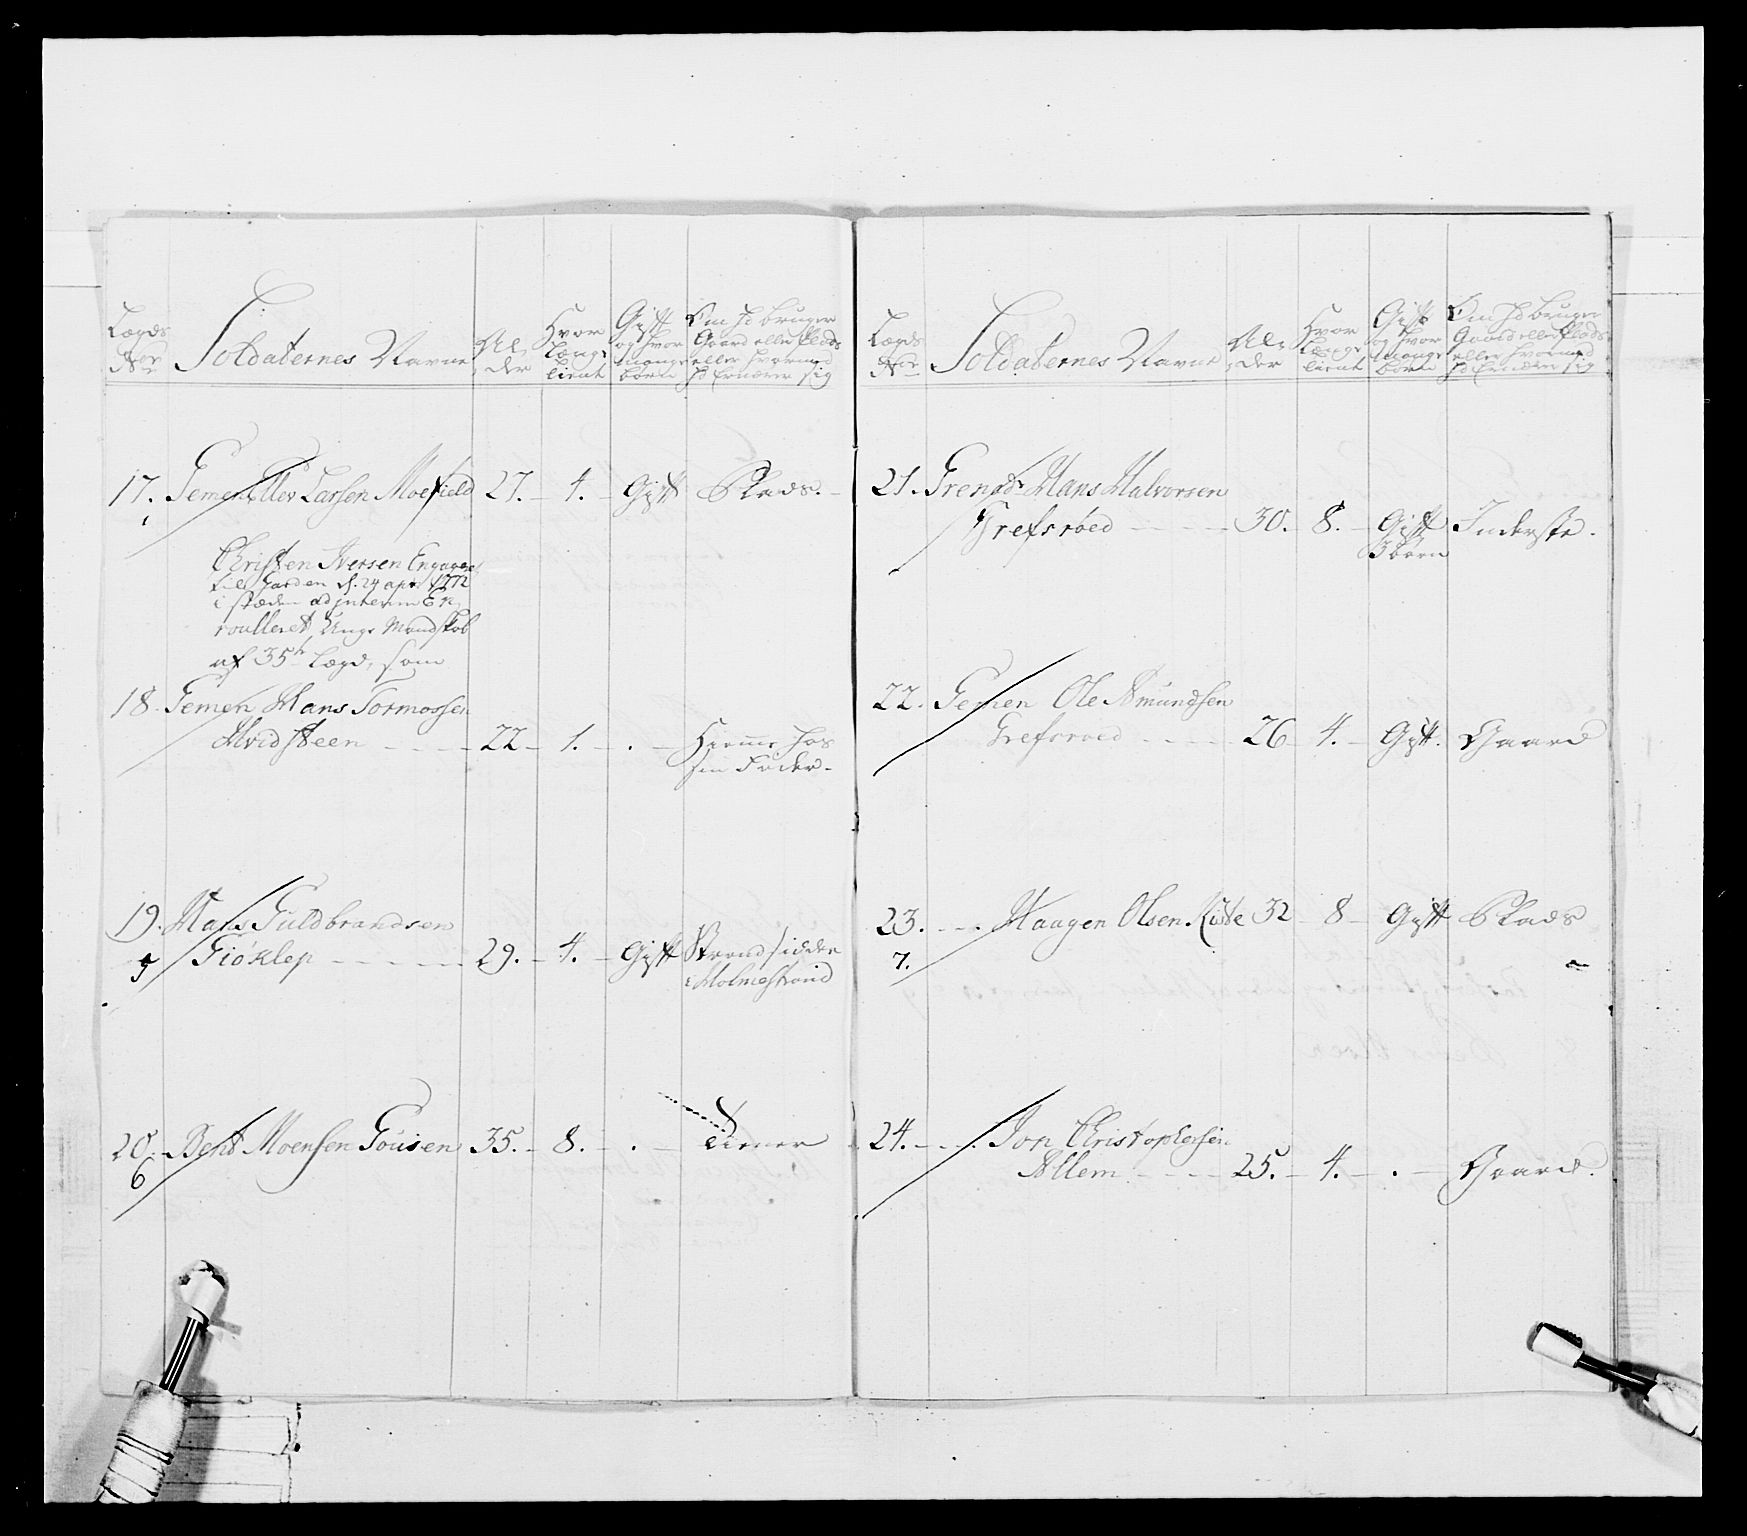 Lægds
No
Soldaternes Navne
Al-
der
Hvor
Længe
tient
Gift
og hvor
mange
børn
Om Hd bruger
Gaard eller Plads
eller hvormed
Hd Ernærer sig
17. Gemen Eller Larsen Moefield 27. - 4. - Gift Plads. -
Christen Iversen Engageret
til Garden d. 24 apr 1772
i stæden ad interim En-
roulleret Unge Mandskab
af 35te Lægd, som
18. Gemen Hans Tormossen
Hvidsteen - - - - 22 - 1. - . - Hieme hos
sin Fader -
19. Hans Guldbrandsen
5 Giøklep - - - - - 29. - 4. - Gift Strandsidder
i Holmestrand
20. Bent Moensen Gousen 35. - 8. - . - Tiener
6
Lægds
No
Soldaternes Navne
Al-
der
Hvor
Længe
tient
Gift
og hvor
mange
børn
Om Hd bruger
Gaard eller Plads
eller hvormed
Hd Ernærer sig
21. Grenadr Hans Halvorsen
Grefsröed - - - - 30. - 8. - Gift Inderste.
3 børn
22. Gemen Ole Amundsen
Grefsroed - - - - 26 - 4. - Gift. Gaard
23. - - . Haagen Olsen Røste 32 - 8 - Gift Plads
7.
24. - - - . Jon Christophersen
Allem - - - - 25. - 4. - . - Gaard.